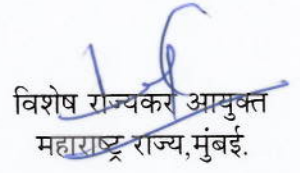 विशेष राज्यकर आयुक्त
महाराष्ट्र राज्य,मुंबई.